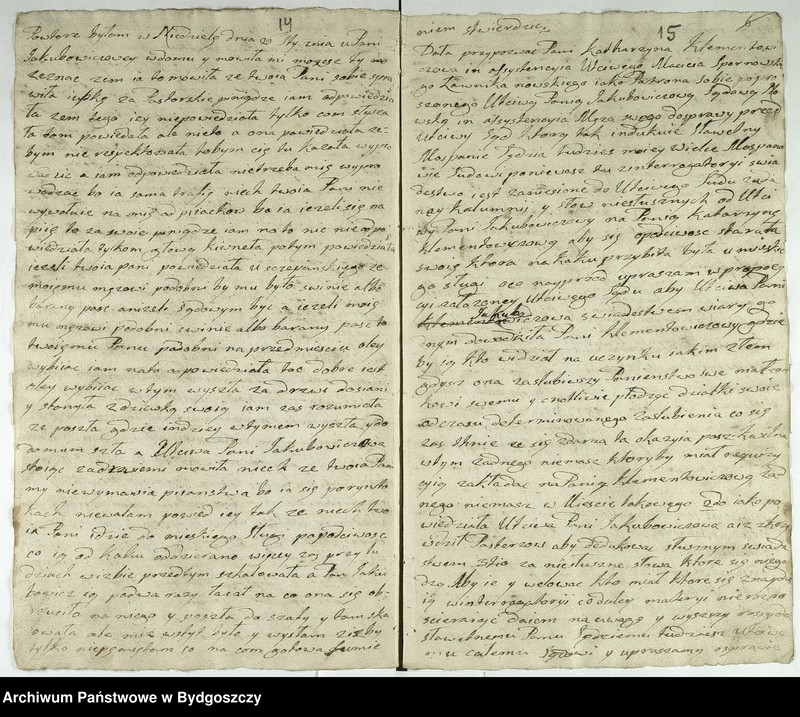 14
Powtore byłam w Niedzielę dnia 2 stycznia u Pani
Jakubowiczowey w domu y mowiła mi mozesz ty
zeznac zem ia to mowiła ze twoia Pani sobie spra
wiła iupkę za Pastorskie piniądze iam odpowiedzia
ła zem tego iey niepowiedziała tylko com słysza
ła tom powiedała ale nieto a ona powiedziała ze
bym nie respektowała tobym cię tu kazała wypro
wadzic a iam odpowiedziała nietrzeba mię wypro
wadzac bo ia sama trafię niech twoia Pani nie
wywołuie na mię w piiackow bo ia iezeli się na
piię to za swoie piniądze iam na to nic nieodpo
wiedziała tylkom głową kiwnęła potym powiedziała
iezeli twoia pani powiedziała u szczepanskiego ze
moiemu męzowi podobni by mu było swinie albo
barany pasc anizeli sądowym byc a iezeli moię
mu męzowi podobni swinie albo barany pasc to
twoiemu Panu podobni na przedmiesciu oley
wybiiac iam nato odpowiedziała toc dobre iest
oley wybiiac wtym wyszła za drzwi do sieni
y stanęła z dziewką swoią iam zas rozumiała
ze poszła gdzie indziey w tynem wyszła y do
domum szła a Uttciwa Pani Jakubowiczowa
stoiąc za drzwiemi mowiła niech ze twoia Pani
my niewymawia piianstwa bo ia się po rynszto
kach niewalam powiedz iey tak ze niech two
ia Pani idzie do mieskiego sługi po poczciwosc
co ią od kaku oddzierano więcey zas przy lu
dziach w izbie przedtym szkalowała a Pan Jaku
bowicz ią po dwa razy łaiał na co ona się ob
rouciła na niego y poszła do szafy y tam ska
owała ale mie wstyt było y wyszłam z izby
tylko niepęmiętam co na com gotowa sumie
15
niem stwierdzic.
Dała przypozwac Pani Katharzyna Klementowi
czowa in assystencyia Utciwego Macieia Spornowskie
go Ławnika nowskiego iako Patrona sobie popro
szonego Utciwą Panią Jakubowiczową Sądową No
wską in assystencyia Męza swego do sprawy przed
Utciwy Sąd ktory tak indukuie Sławetny
Mospanie Sędzia tudziesz moiey wielce Mospano
wie Sądowi poniewasz tu z interrogatoryi swia
dectwo iest zaniesione do Utciwego Sądu zada
ney kalumnii y słow niesłusznych od Utci
wey Pani Jakubowiczowy na Panią Katarzynę
Klementowiczową aby się o poczciwosc starała
swoię ktora na kaku przybita była u mieskie
go sługi oco nayprzod upraszam w propozy
cyi załozoney Utciwego Sądu aby Utciwa Pani
Jakubo
wiczowa swiadectwem wiary go
dnym dowodziła Pani Klementowiczowy gdzie
by ią kto widział na uczynku iakim złem
gdysz ona zaslubiwszy Panienstwo swe małzon
kowi swemu y cnotliwie płodząc dziatki swoie
od czasu determinowanego zaslubienia co się
zas tknie ze się zdarza ta okazyia paszkwilna
wtym zadnego niemasz ktoryby miał requizy
cyią zakładac na Panią Klementowiczową zad
nego niemasz w Miescie takowego do iako po
wiedziała Utciwa Pani Jakubowiczowa aiz zkąd
wdził Pasterzow aby dedukować słusznym swiade
ctwem zkto za niesłuszne słowa ktore się niego
dzą Aby ie y welowac kto miał ktore się znaydu
ią w interrogatoryi co daley materyi nie rozpo
scieraiąc daiem na uwagę y wyszszy rozsądek
sławetnemu Panu Sędziemu tudziesz Utciwe
mu całemu Sądowi y upraszamy o sprawie
Archiwum Państwowe w Bydgoszczy